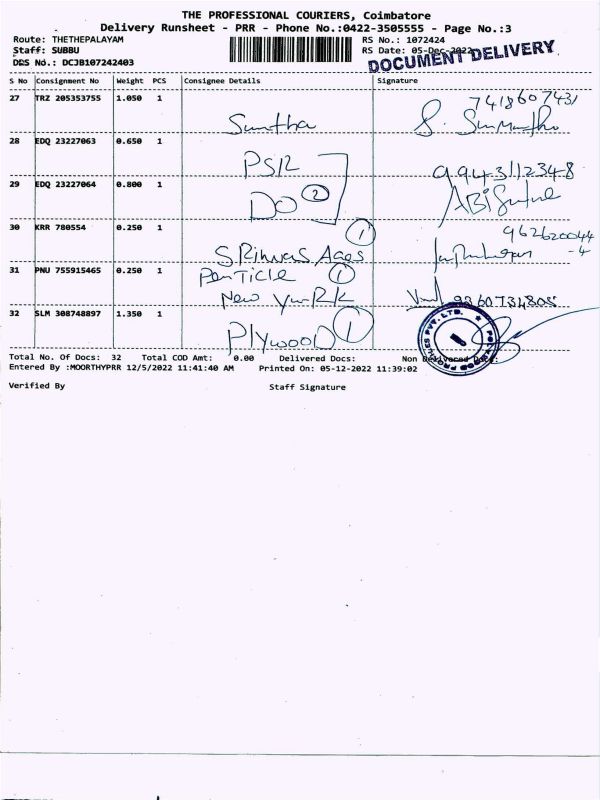 THE PROFESSIONAL COURIERS, Coimbatore
Delivery Runsheet - PRR - Phone No.:0422-3505555 - Page No.:3
Route: THETHEPALAYAM
RS No.: 1072424
Staff: SUBBU
RS Date: 05-Dec-2022
DRS No.: DCJB107242403
DOCUMENT DELIVERY
S No Consignment No Weight PCS Consignee Details Signature
27 TRZ 205353755 1.050 1
7418607431
Sunitha
28 EDQ 23227063 0.650 1
PSR
9943112348
29 EDQ 23227064 0.800 1
DO 2
30 KRR 780554 0.250 1
1
962620044
-4
31 PNU 755915465 0.250 1
Penticle 1
New
9360734805
32 SLM 308748897 1.350 1
Plywood 1
PVT. LTD.
Total No. Of Docs: 32 Total COD Amt: 0.00 Delivered Docs: Non Delivered Docs:
Entered By :MOORTHYPRR 12/5/2022 11:41:40 AM Printed On: 05-12-2022 11:39:02
Verified By Staff Signature